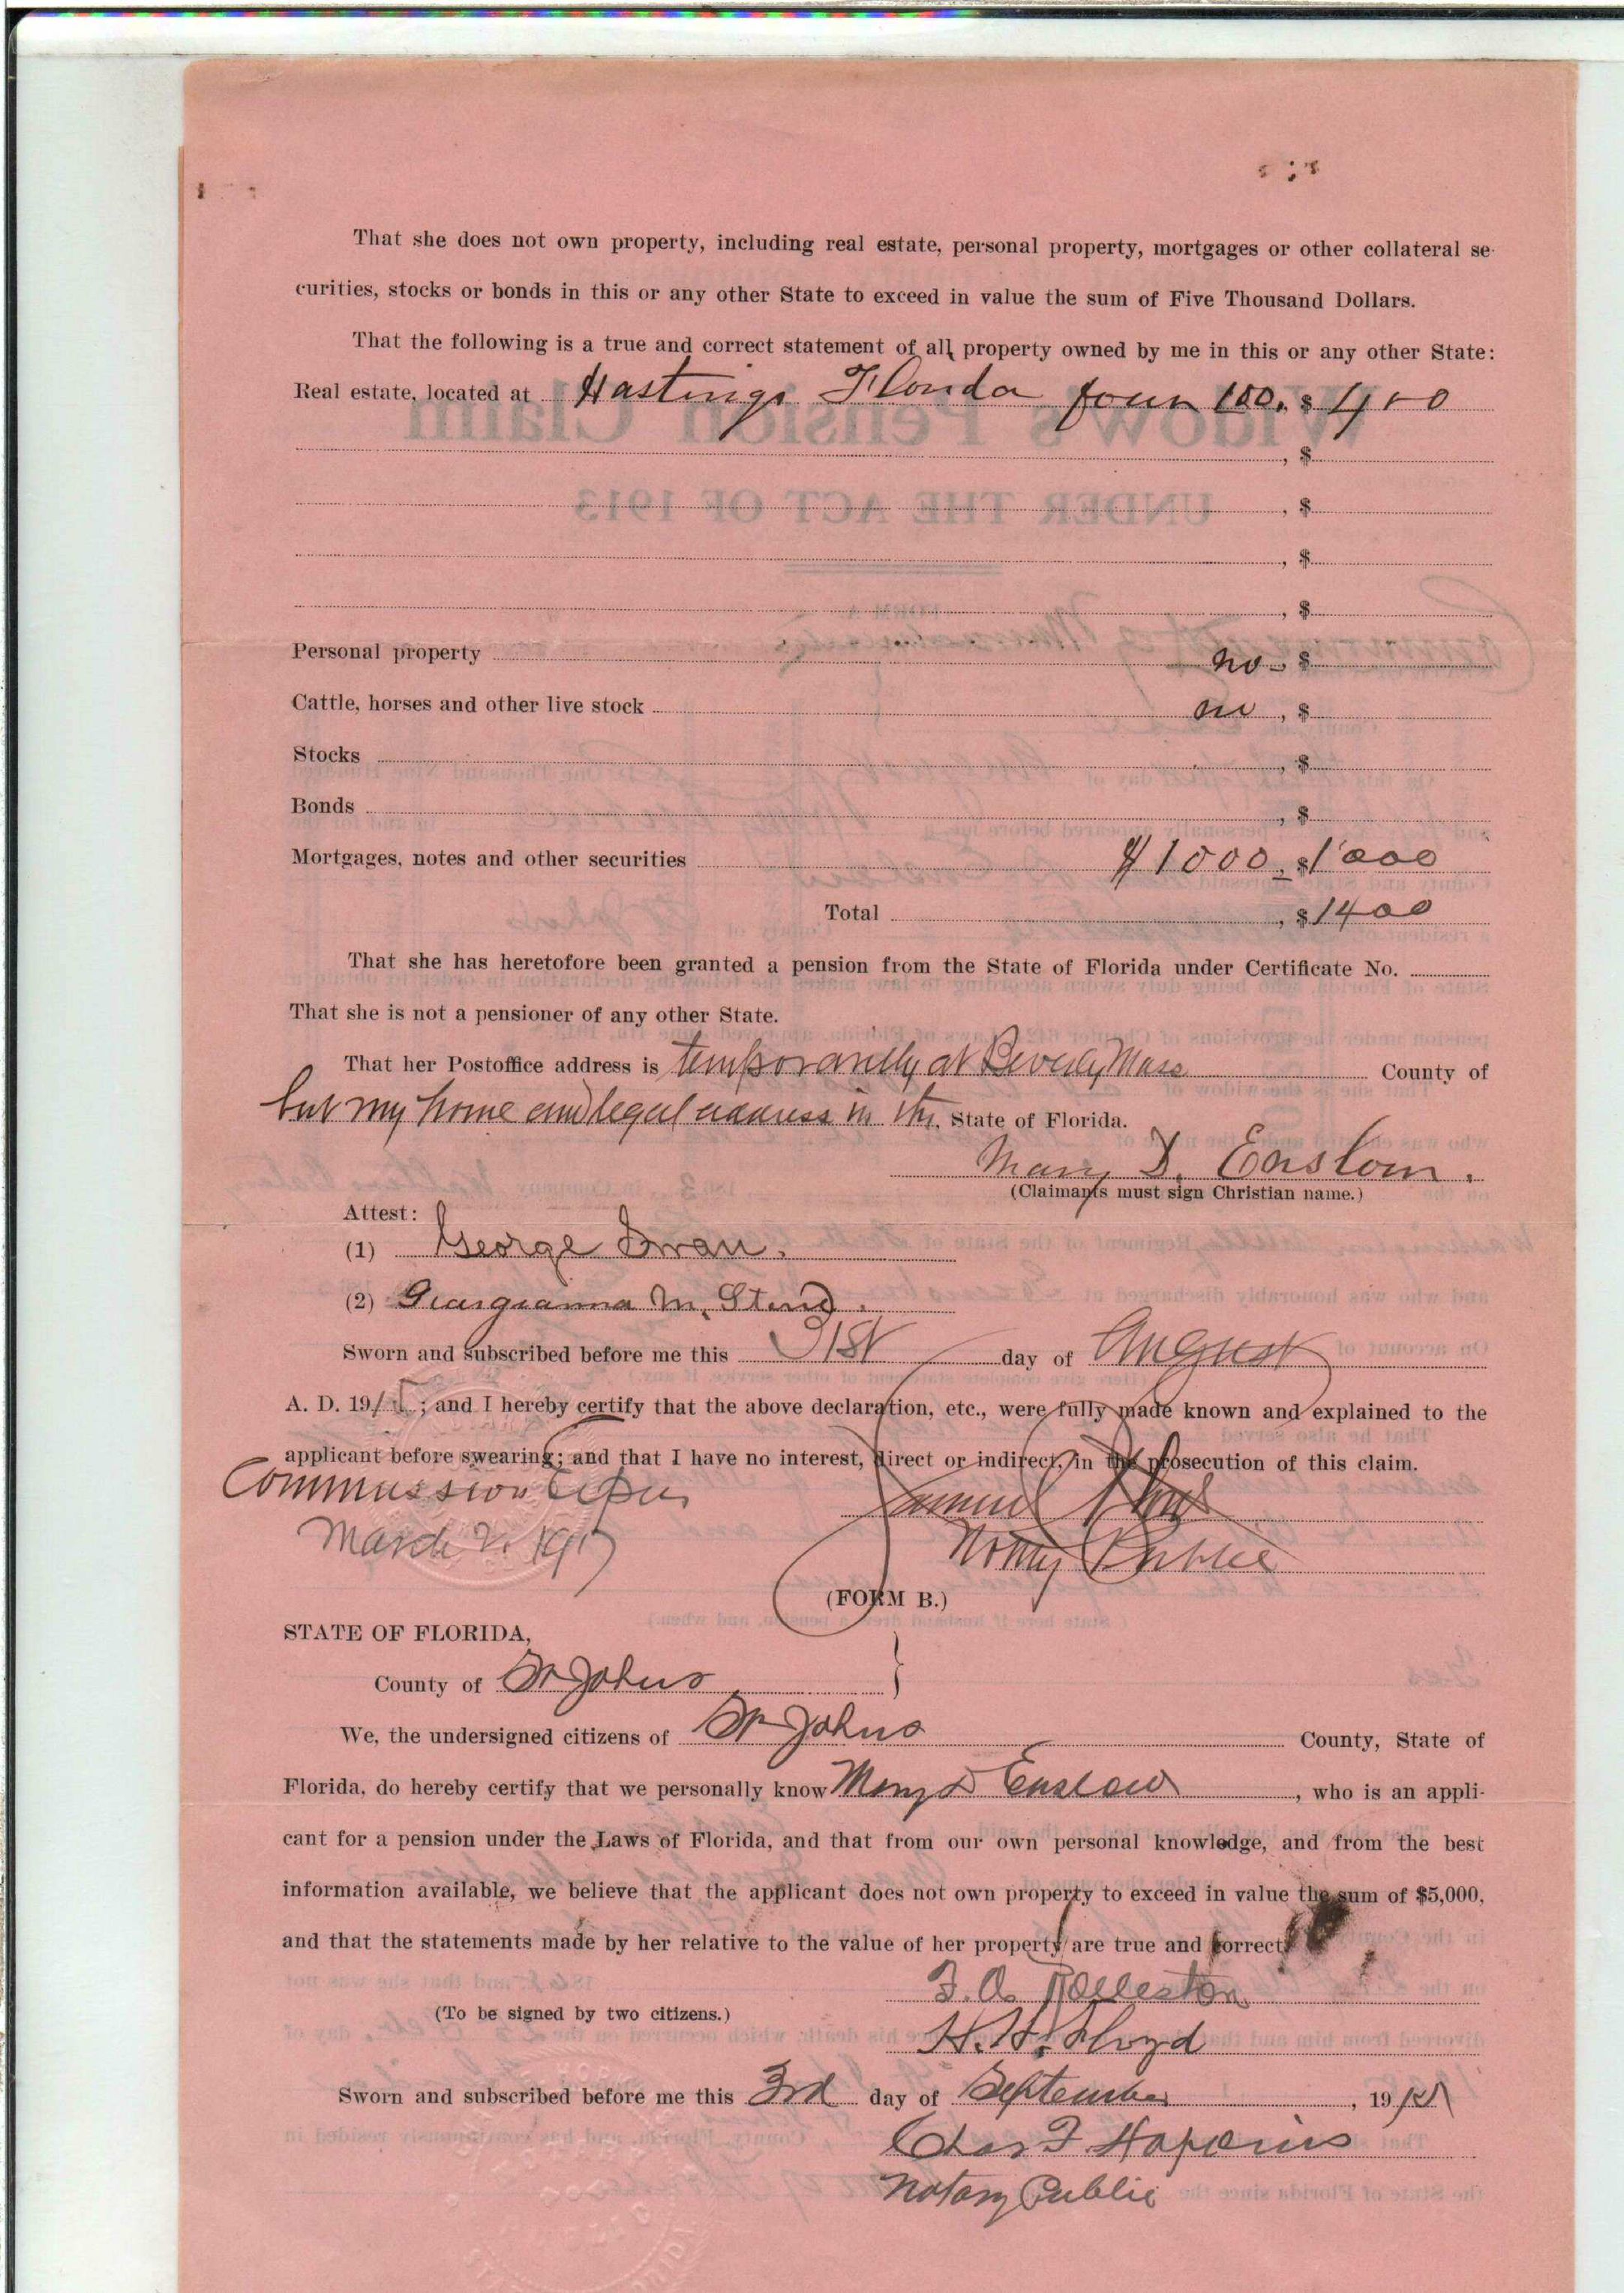 That she does not own property, including real estate, personal property, mortgages or other collateral se-
curities, stocks or bonds in this or any other State to exceed in value the sum of Five Thousand Dollars.
That the following is a true and correct statement of all property owned by me in this or any other State:
Real estate, located at Hastings Florida four 100. $ 400
, $
, $
, $
, $
Personal property no - $
Cattle, horses and other live stock no , $
Stocks , $
Bonds , $
Mortgages, notes and other securities $1000. $1000
Total , $1400
That she has heretofore been granted a pension from the State of Florida under Certificate No.
That she is not a pensioner of any other State.
That her Postoffice address is temporarily at Beverly Mass County of
but my home and legal address in the, State of Florida.
Mary D. Enslow.
(Claimants must sign Christian name.)
Attest:
(1) George Swan.
(2) Georgianna M.
Sworn and subscribed before me this 31st day of August
A. D. 1915; and I hereby certify that the above declaration, etc., were fully made known and explained to the
applicant before swearing; and that I have no interest, direct or indirect, in the prosecution of this claim.
Commission Expires
March 2. 1917
Samuel
Notary Public
(FORM B.)
STATE OF FLORIDA,
County of St Johns }
We, the undersigned citizens of St Johns County, State of
Florida, do hereby certify that we personally know Mary D Enslow, who is an appli-
cant for a pension under the Laws of Florida, and that from our own personal knowledge, and from the best
information available, we believe that the applicant does not own property to exceed in value the sum of $5,000,
and that the statements made by her relative to the value of her property are true and correct.
F. A. Rolleston
(To be signed by two citizens.)
H. H. Floyd
Sworn and subscribed before me this 3rd day of September, 1915
Chas F. Hopkins
Notary Public